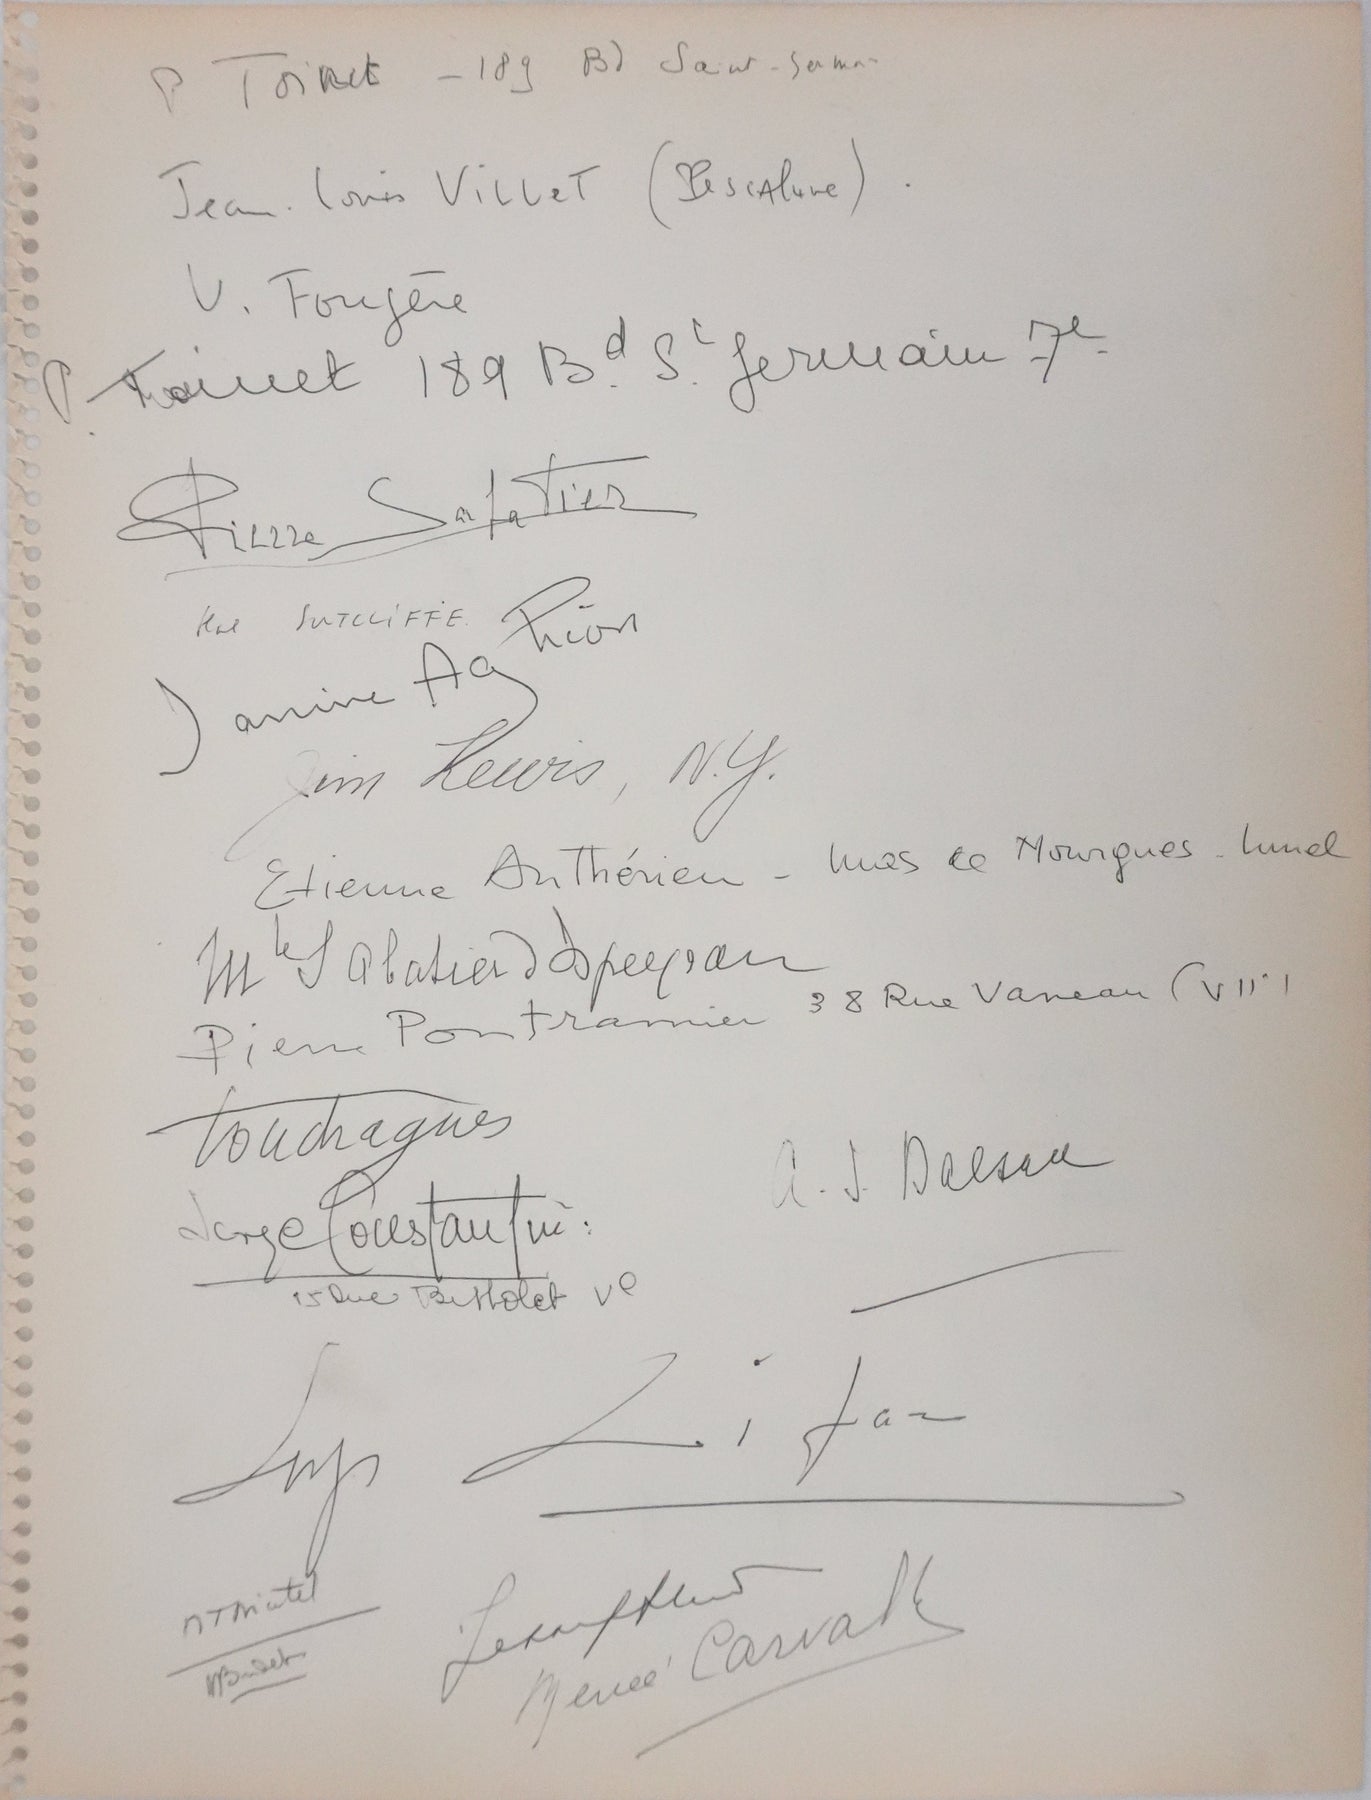 P Toinet - 189 Bd Saint-Germain
Jean. Louis VILLET (Pescalune).
V. Fougère
P. Toinet 189 Bd. St Germain 7e
Pierre Sabatier
SUTCLIFFE.
Janine Aghion
Jim Lewis, N.Y.
Etienne Anthérieu - Mas de Mourgues - Lunel
Mlle Sabatier d'Espeyran
Pierre Pontramier 38 Rue Vaneau (VII
Toudragues
A. J. Dalsace
Serge Constantin
15 Rue Bertholet Ve
Serge Lifar
Renée Carvalh